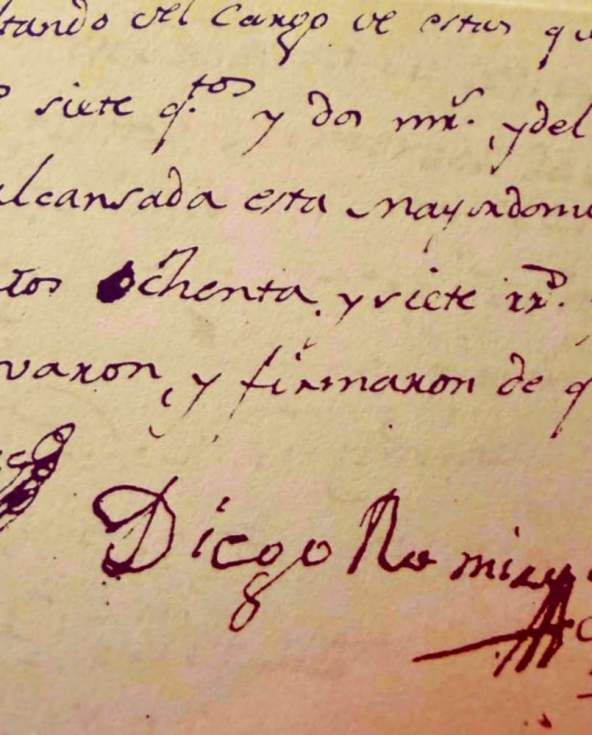 tando del Cargo de estas qu
siete q.tos y dos mrs. y del
alcansada esta Mayordomi
tos ochenta, y siete rrs.
varon, y firmaron de q
Diego Ramirez